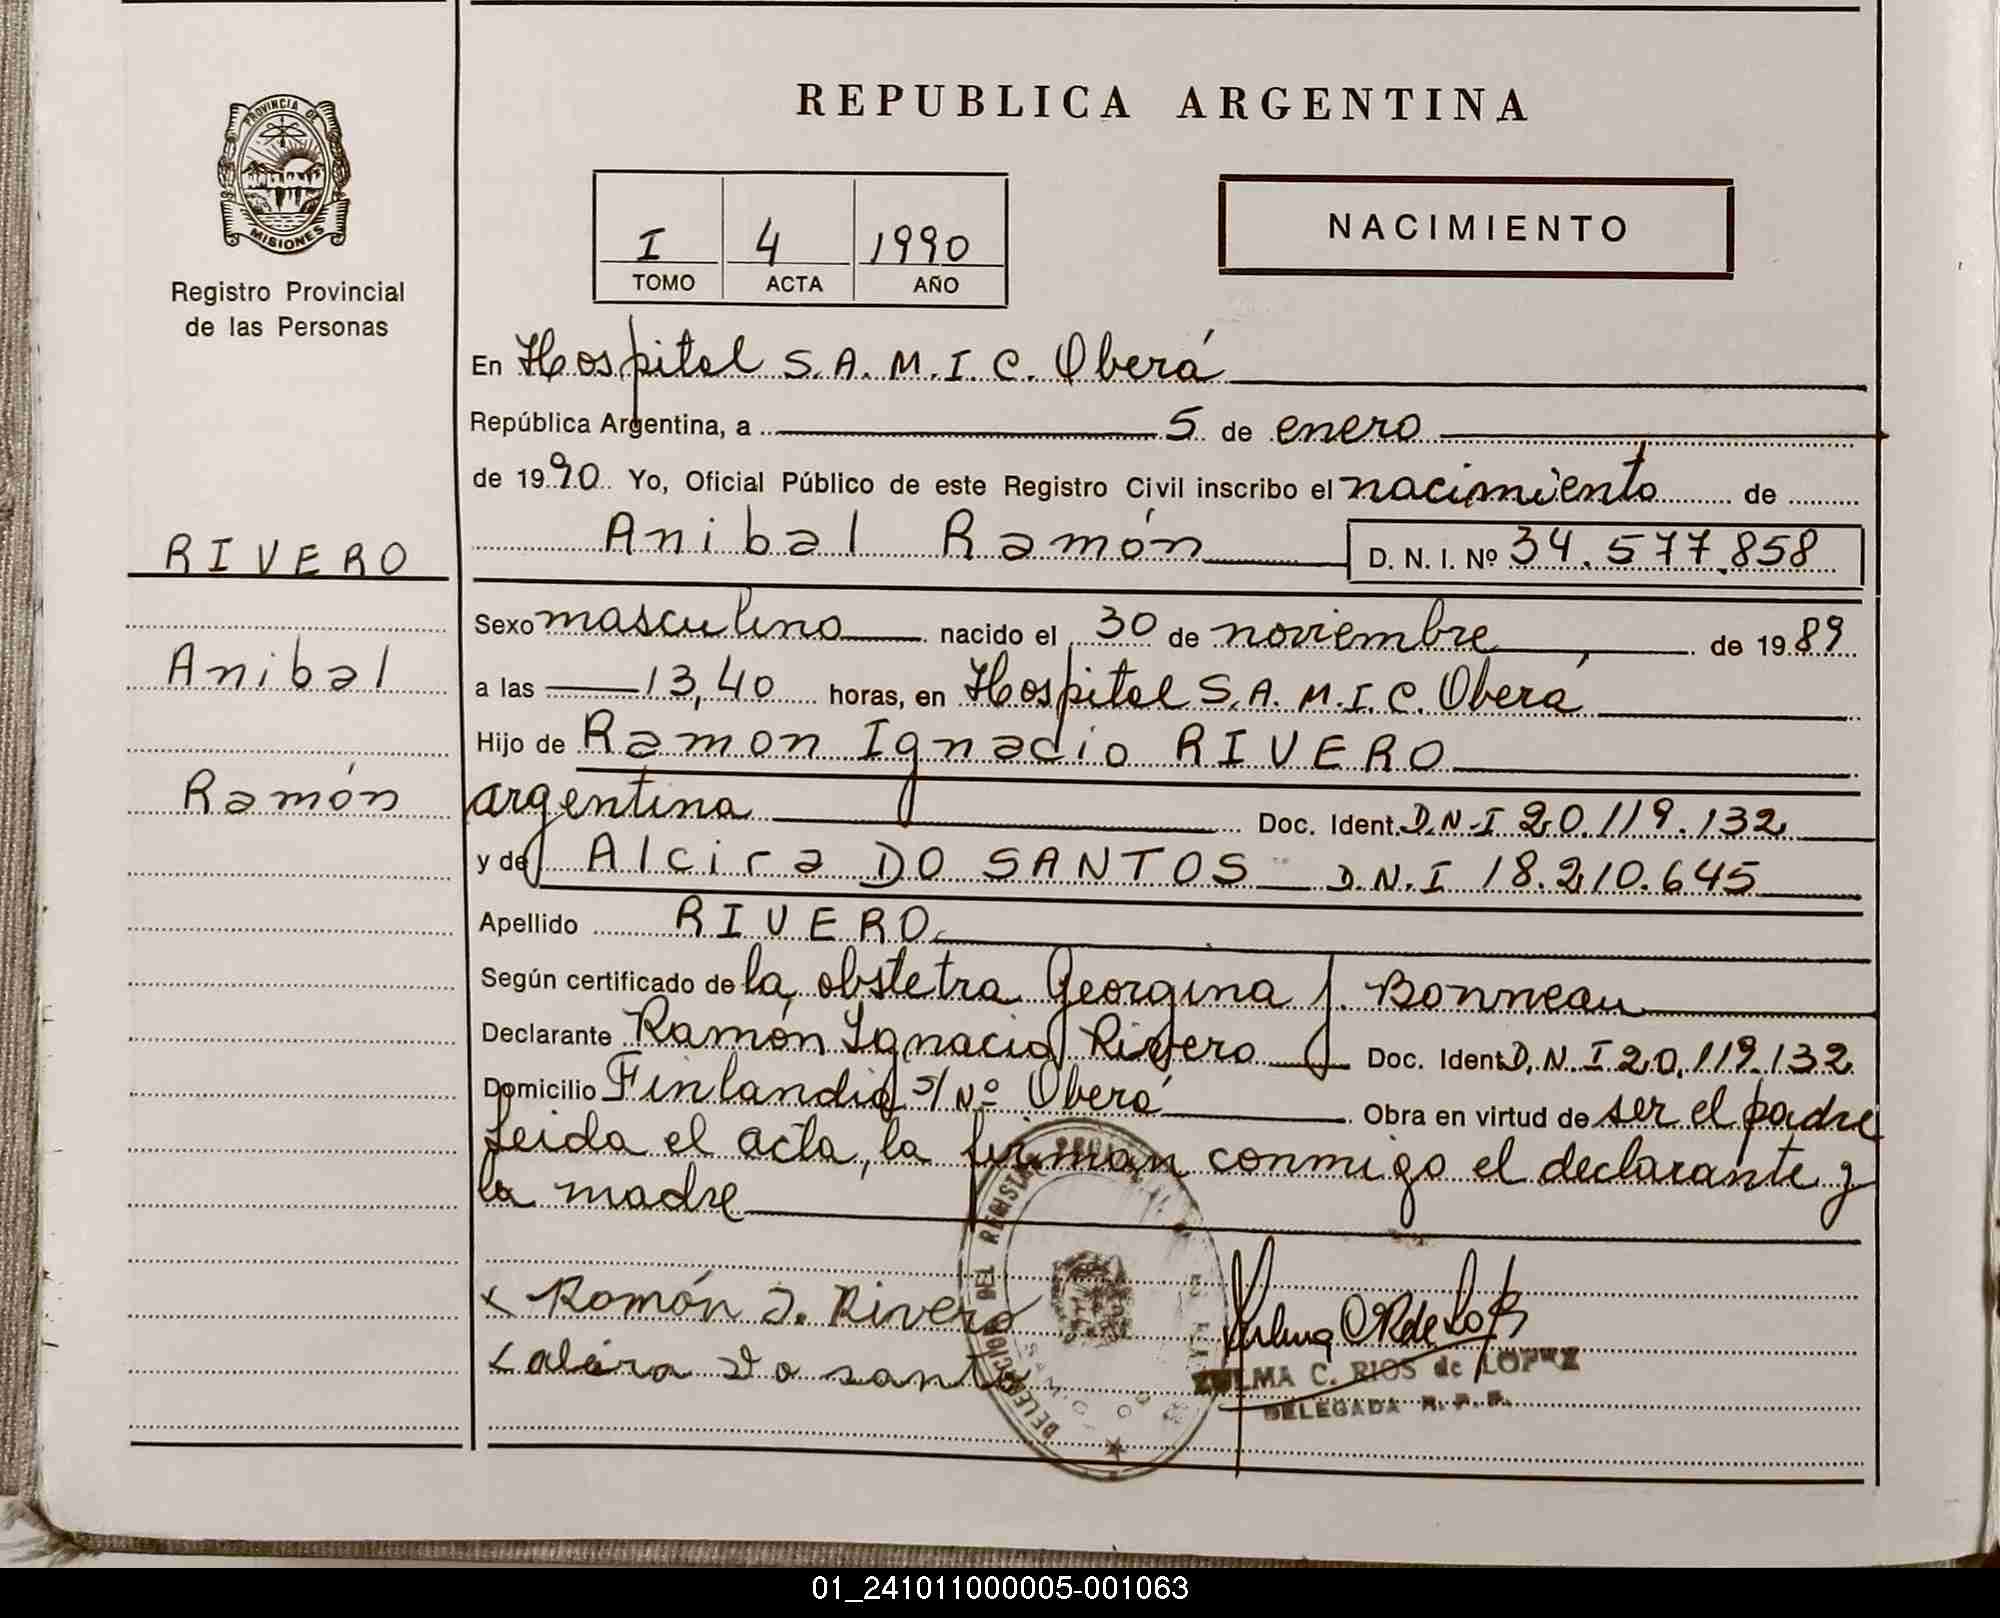 PROVINCIA DE
MISIONES
Registro Provincial
de las Personas
RIVERO
Anibal
Ramón
REPUBLICA ARGENTINA
I 4 1990
TOMO ACTA AÑO
NACIMIENTO
En Hospital S.A.M.I.C. Oberá
República Argentina, a 5 de enero
de 1990 Yo, Oficial Público de este Registro Civil inscribo el nacimiento de
Anibal Ramón D. N. I. Nº 34.577.858
Sexo masculino nacido el 30 de noviembre de 1989
a las 13,40 horas, en Hospital S.A.M.I.C. Oberá
Hijo de Ramon Ignacio RIVERO
argentina Doc. Ident. D.N.I 20.119.132
y de Alcira DO SANTOS D.N.I 18.210.645
Apellido RIVERO
Según certificado de la obstetra Georgina J. Bonneau
Declarante Ramón Ignacio Rivero Doc. Ident. D.N.I 20.119.132
Domicilio Finlandia s/Nº Oberá Obra en virtud de ser el padre
Leida el acta, la firman conmigo el declarante y
la madre
x Ramón I. Rivero
DELEGACION DEL REGISTRO
ZULMA C. RIOS de LOPEZ
DELEGADA R.P.P.
01_241011000005-001063